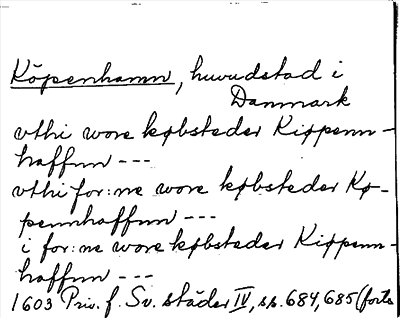 Köpenhamn, huvudstad i
Danmark
vthi wore købsteder Kiøpenn-
haffnn ---
vthi for:ne wore købsteder Kø-
pennhaffnn ---
i for:ne wore købsteder Kiøpenn-
haffnn ---
1603 Priv. f. Sv. städer IV, s. 684, 685 (forts